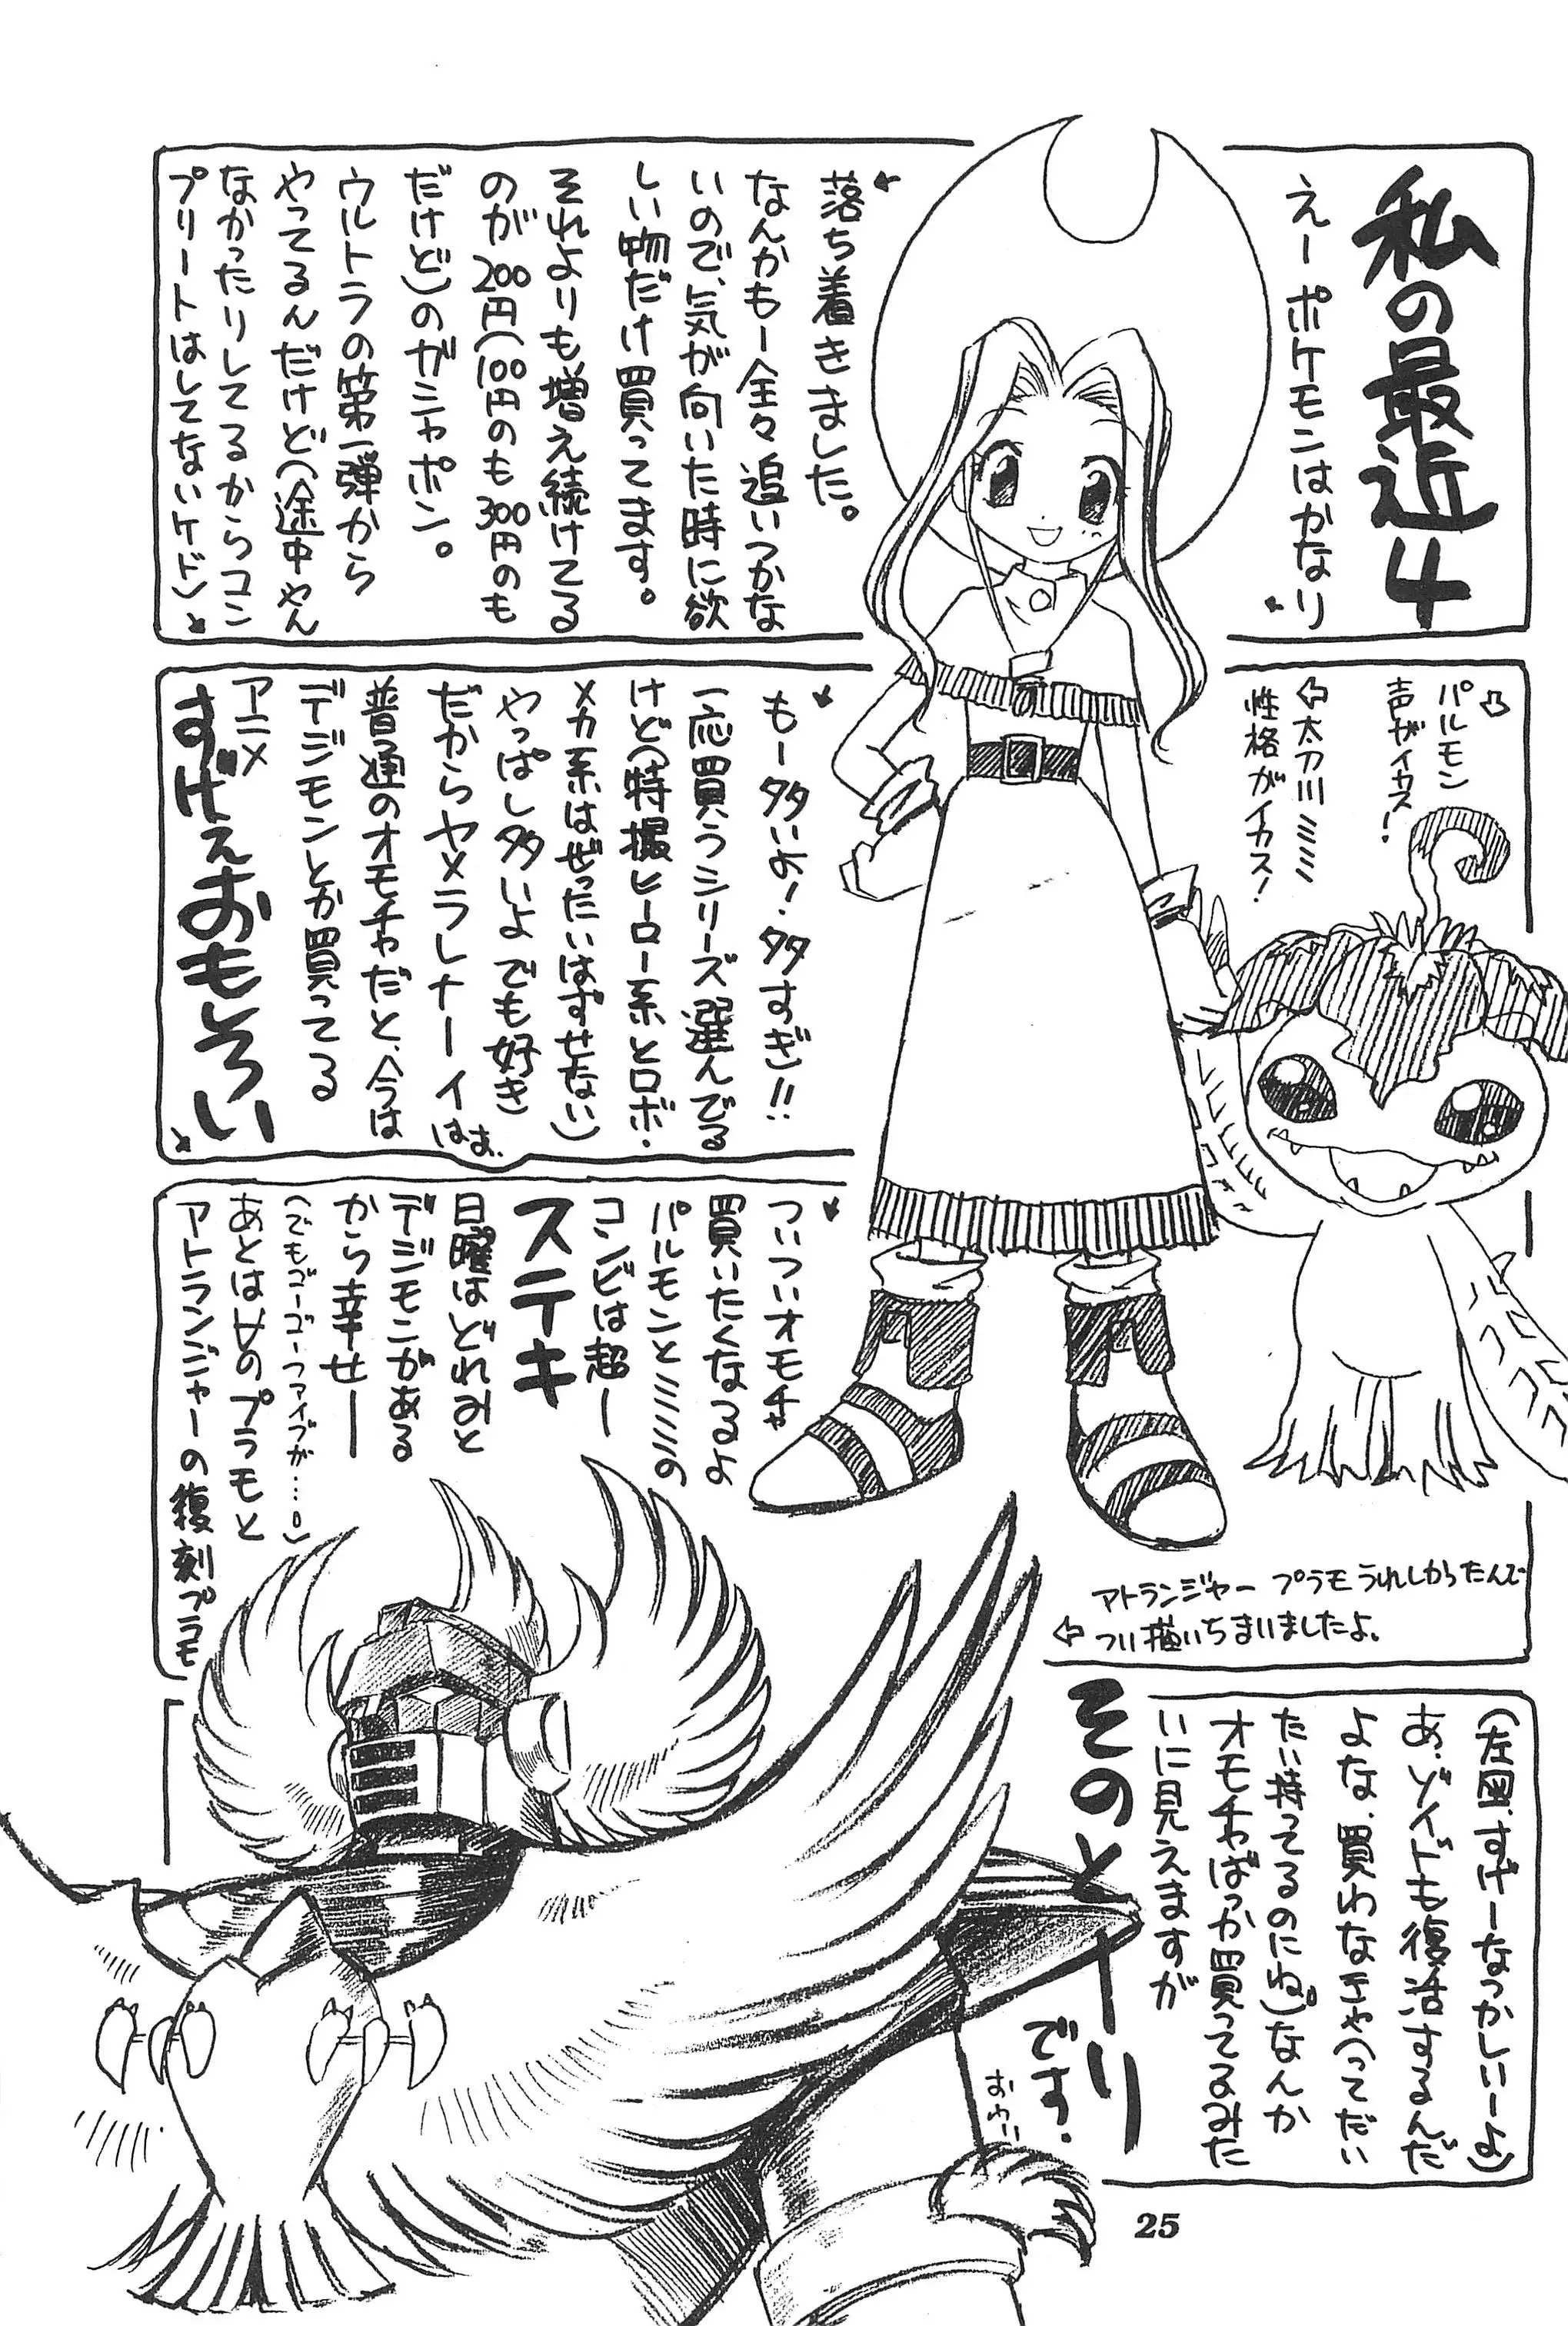 私の最近4
えーポケモンはかなり
落ち着きました。
なんかもー全々追いつかな
いので、気が向いた時に欲
しい物だけ買ってます。
それよりも増え続けてる
のが200円(100円のも300円のも
だけど)のガシャポン。
ウルトラの第一弾から
やってるんだけど(途中やん
なかったりしてるからコン
プリートはしてないケド)
パルモン
声がイカス!
太刀川ミミ
性格がイカス!
もー多いよ!多すぎ!!
一応買うシリーズ選んでる
けど(特撮ヒーロー系とロボ・
メカ系はぜったいはずせない)
やっぱし多いよでも好き
だからヤメラレナーイはぁ、
普通のオモチャだと、今は
デジモンとか買ってる
アニメ
すげぇおもしろい
ついついオモチャ
買いたくなるよ
パルモンとミミの
コンビは超ー
ステキ
日曜はどれみと
デジモンがある
から幸せ――
(でもゴーゴーファイブが…。)
あとは
のプラモと
アトランジャーの復刻プラモ
アトランジャー プラモ うれしかったんで
つい描いちまいましたよ。
(左図、すげーなつかしいーよ)
あ、ゾイドも復活するんだ
よな、買わなきゃ(ってだい
たい持ってるのにね)なんか
オモチャばっか買ってるみた
いに見えますが
そのとーり
です.
おわ
25